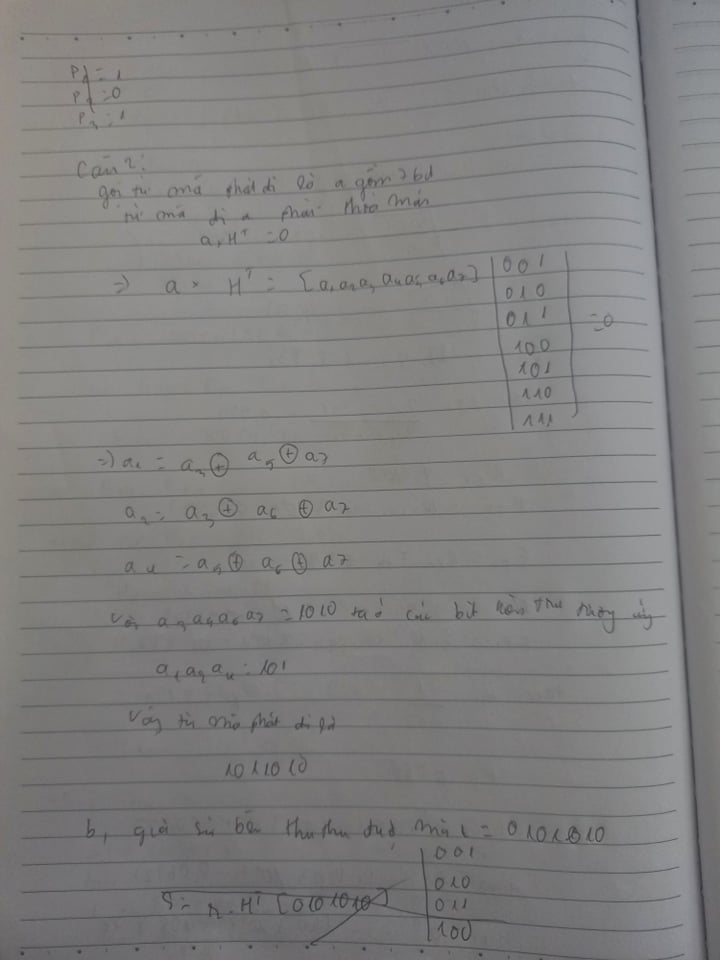 P1 = 1
P2 = 0
P3 = 1
Câu 2:
gọi từ mã phát đi là a gồm 7 bit
từ mã đi a phải thỏa mãn
a, H^T = 0
=> a × H^T = [a1 a2 a3 a4 a5 a6 a7]
001
010
011
100
101
110
111
= 0
=> a1 = a3 ⊕ a5 ⊕ a7
a2 = a3 ⊕ a6 ⊕ a7
a4 = a5 ⊕ a6 ⊕ a7
Với a3 a5 a6 a7 = 1010 ta có các bit kiểm tra tương ứng
a1 a2 a4 : 101
Vậy từ mã phát đi là
1011010
b, giả sử bên thu thu được mã r = 0101010
S = r . H^T [0101010]
001
010
011
100